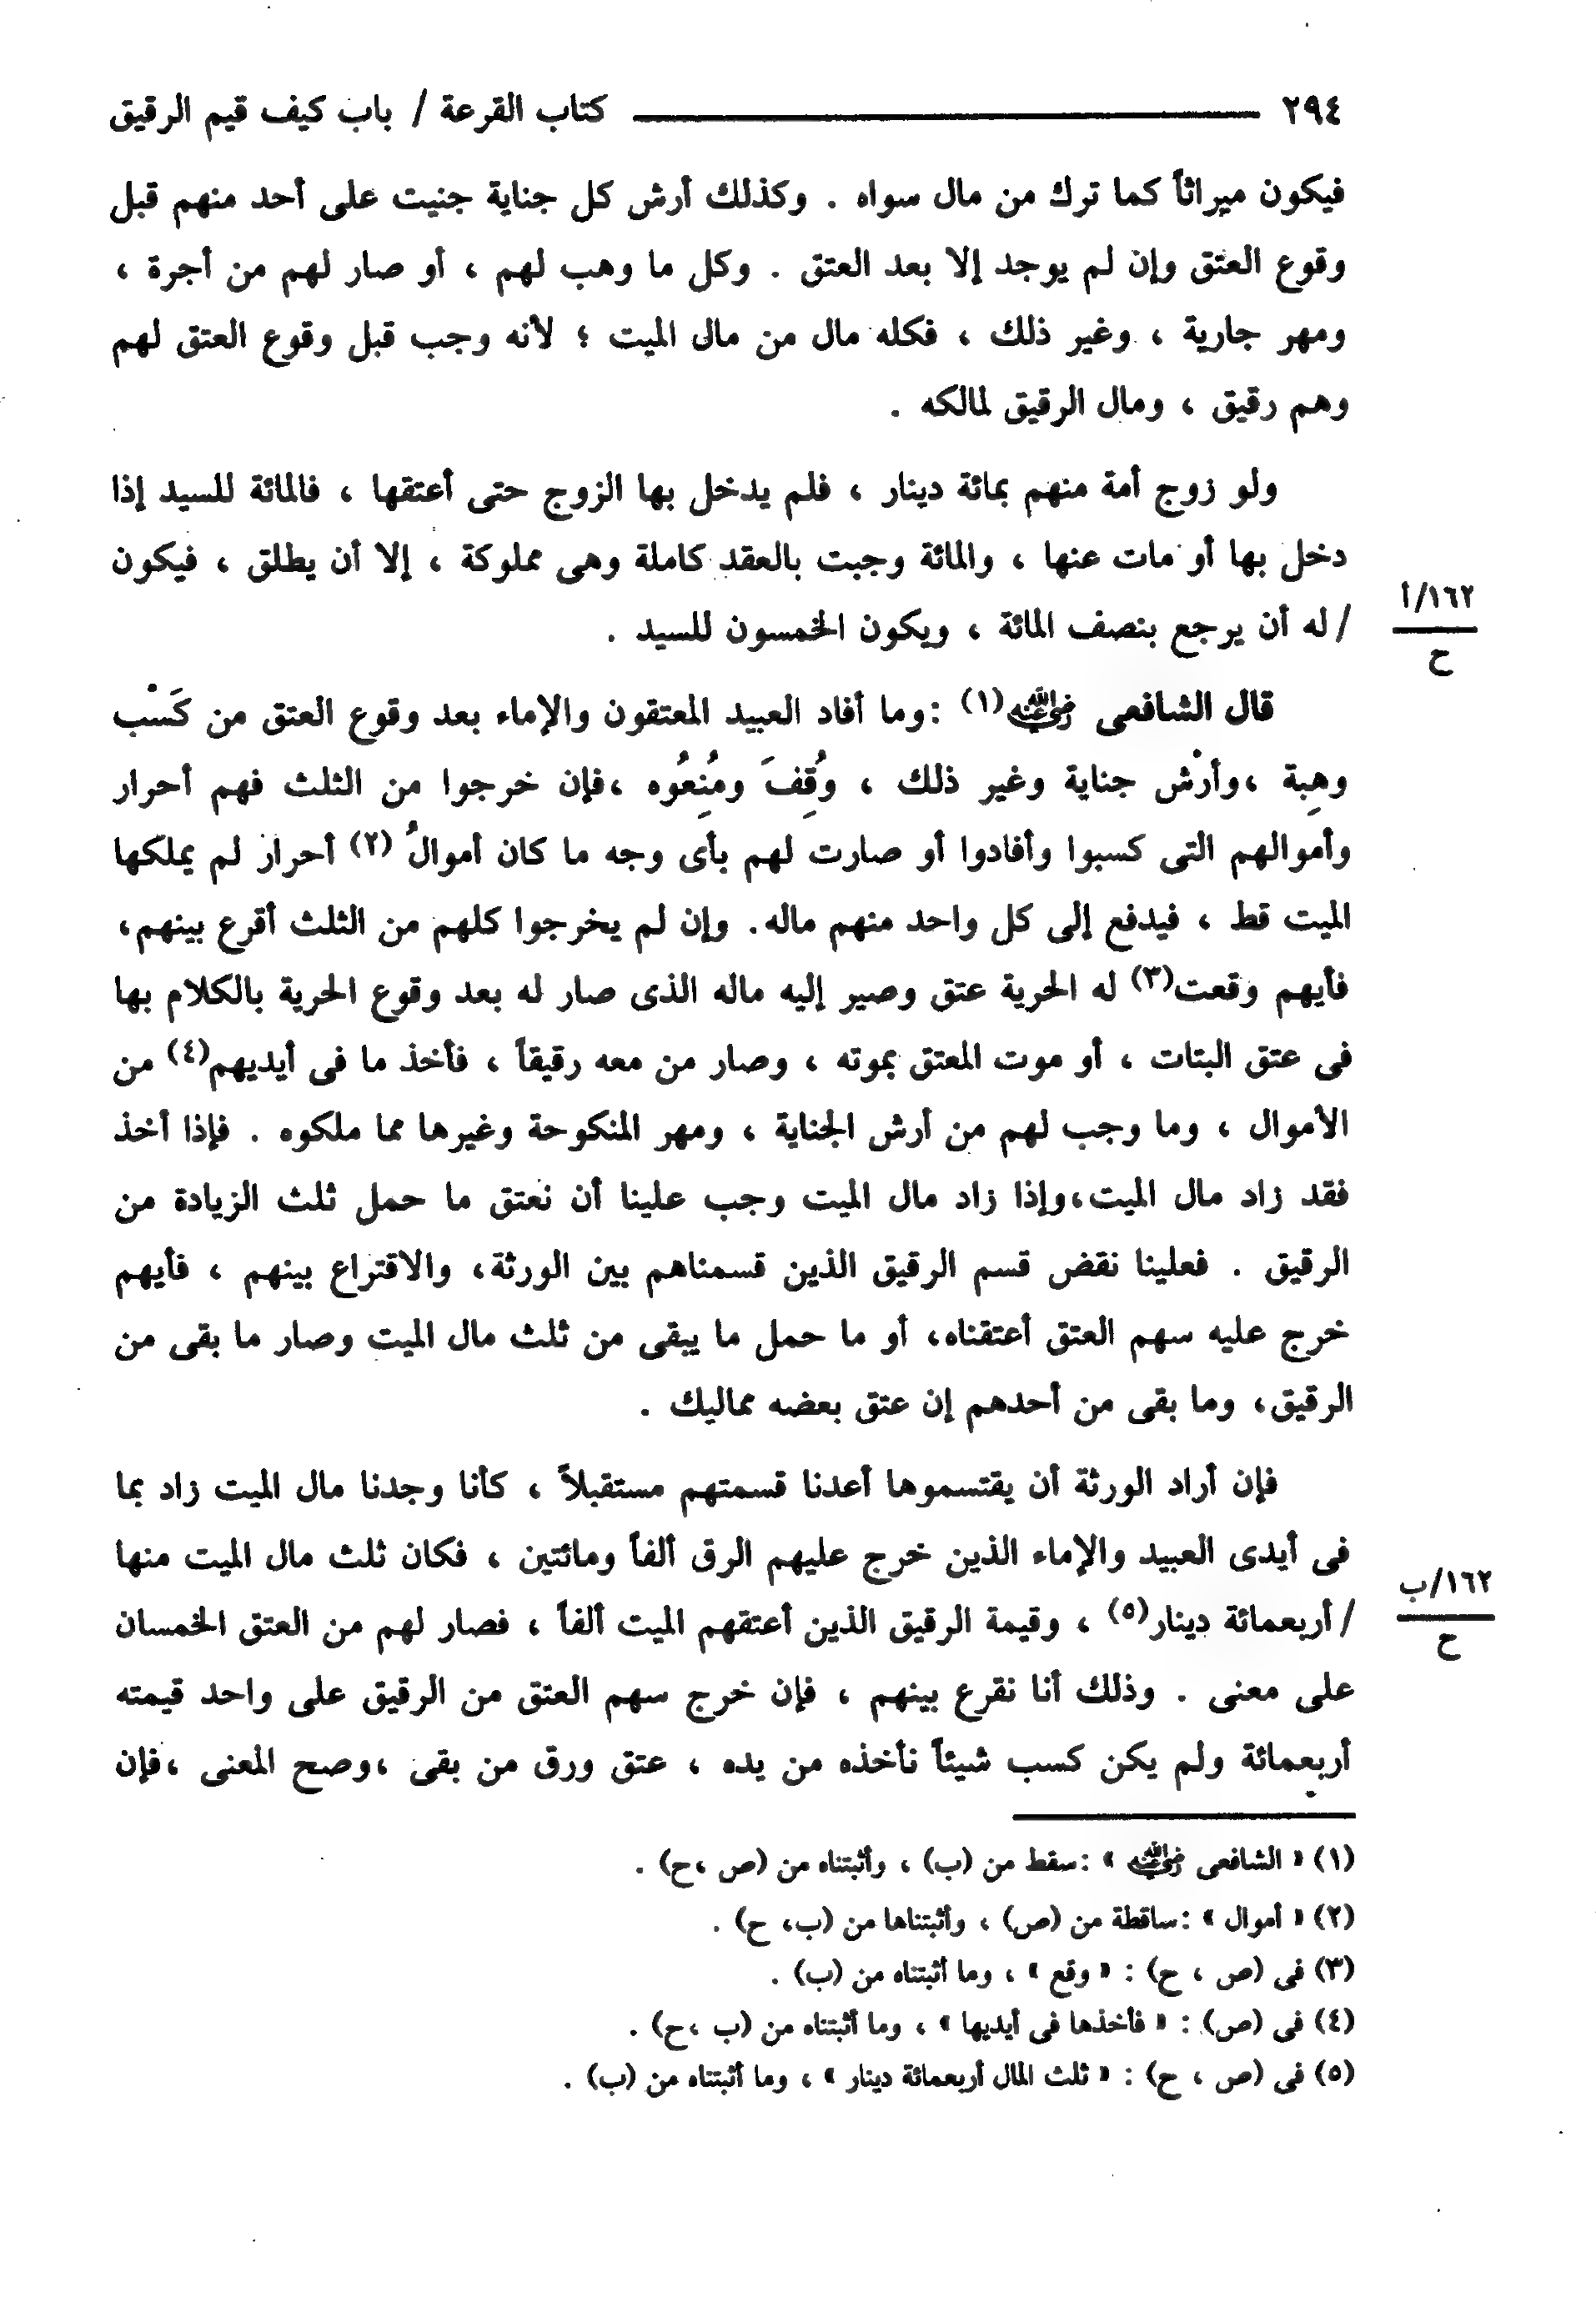 ٢٩٤ كتاب القرعة / باب كيف قيم الرقيق
فيكون ميراثاً كما ترك من مال سواه . وكذلك أرش كل جناية جنيت على أحد منهم قبل
وقوع العتق وإن لم يوجد إلا بعد العتق . وكل ما وهب لهم ، أو صار لهم من أجرة ،
ومهر جارية ، وغير ذلك ، فكله مال من مال الميت ؛ لأنه وجب قبل وقوع العتق لهم
وهم رقيق ، ومال الرقيق لمالكه .
ولو زوج أمة منهم بمائة دينار ، فلم يدخل بها الزوج حتى أعتقها ، فالمائة للسيد إذا
دخل بها أو مات عنها ، والمائة وجبت بالعقد كاملة وهى مملوكة ، إلا أن يطلق ، فيكون
١٦٢/أ
/ له أن يرجع بنصف المائة ، ويكون الخمسون للسيد .
ح
قال الشافعى رضي الله عنه(١) :وما أفاد العبيد المعتقون والإماء بعد وقوع العتق من كَسْب
وهِبة ،وأرْش جناية وغير ذلك ، وُقِفَ ومُنِعُوه ،فإن خرجوا من الثلث فهم أحرار
وأموالهم التى كسبوا وأفادوا أو صارت لهم بأى وجه ما كان أموالُ (٢) أحرار لم يملكها
الميت قط ، فيدفع إلى كل واحد منهم ماله. وإن لم يخرجوا كلهم من الثلث أقرع بينهم،
فأيهم وقعت(٣) له الحرية عتق وصير إليه ماله الذى صار له بعد وقوع الحرية بالكلام بها
فى عتق البتات ، أو موت المعتق بموته ، وصار من معه رقيقاً ، فأخذ ما فى أيديهم(٤) من
الأموال ، وما وجب لهم من أرش الجناية ، ومهر المنكوحة وغيرها مما ملكوه . فإذا أخذ
فقد زاد مال الميت،وإذا زاد مال الميت وجب علينا أن نعتق ما حمل ثلث الزيادة من
الرقيق . فعلينا نقض قسم الرقيق الذين قسمناهم بين الورثة، والاقتراع بينهم ، فأيهم
خرج عليه سهم العتق أعتقناه، أو ما حمل ما يبقى من ثلث مال الميت وصار ما بقى من
الرقيق، وما بقى من أحدهم إن عتق بعضه مماليك .
فإن أراد الورثة أن يقتسموها أعدنا قسمتهم مستقبلاً ، كأنا وجدنا مال الميت زاد بما
فى أيدى العبيد والإماء الذين خرج عليهم الرق ألفاً ومائتين ، فكان ثلث مال الميت منها
١٦٢/ب
/ أربعمائة دينار(٥) ، وقيمة الرقيق الذين أعتقهم الميت ألفاً ، فصار لهم من العتق الخمسان
ح
على معنى . وذلك أنا نقرع بينهم ، فإن خرج سهم العتق من الرقيق على واحد قيمته
أربعمائة ولم يكن كسب شيئاً نأخذه من يده ، عتق ورق من بقى ،وصح المعنى ،فإن
(١) « الشافعى رضي الله عنه » :سقط من (ب) ، وأثبتناه من (ص ،ح) .
(٢) « أموال » :ساقطة من (ص) ، وأثبتناها من (ب، ح) .
(٣) فى (ص ، ح) : « وقع » ، وما أثبتناه من (ب) .
(٤) فى (ص) : « فأخذها فى أيديها » ، وما أثبتناه من (ب ،ح) .
(٥) فى (ص ، ح) : « ثلث المال أربعمائة دينار » ، وما أثبتناه من (ب) .